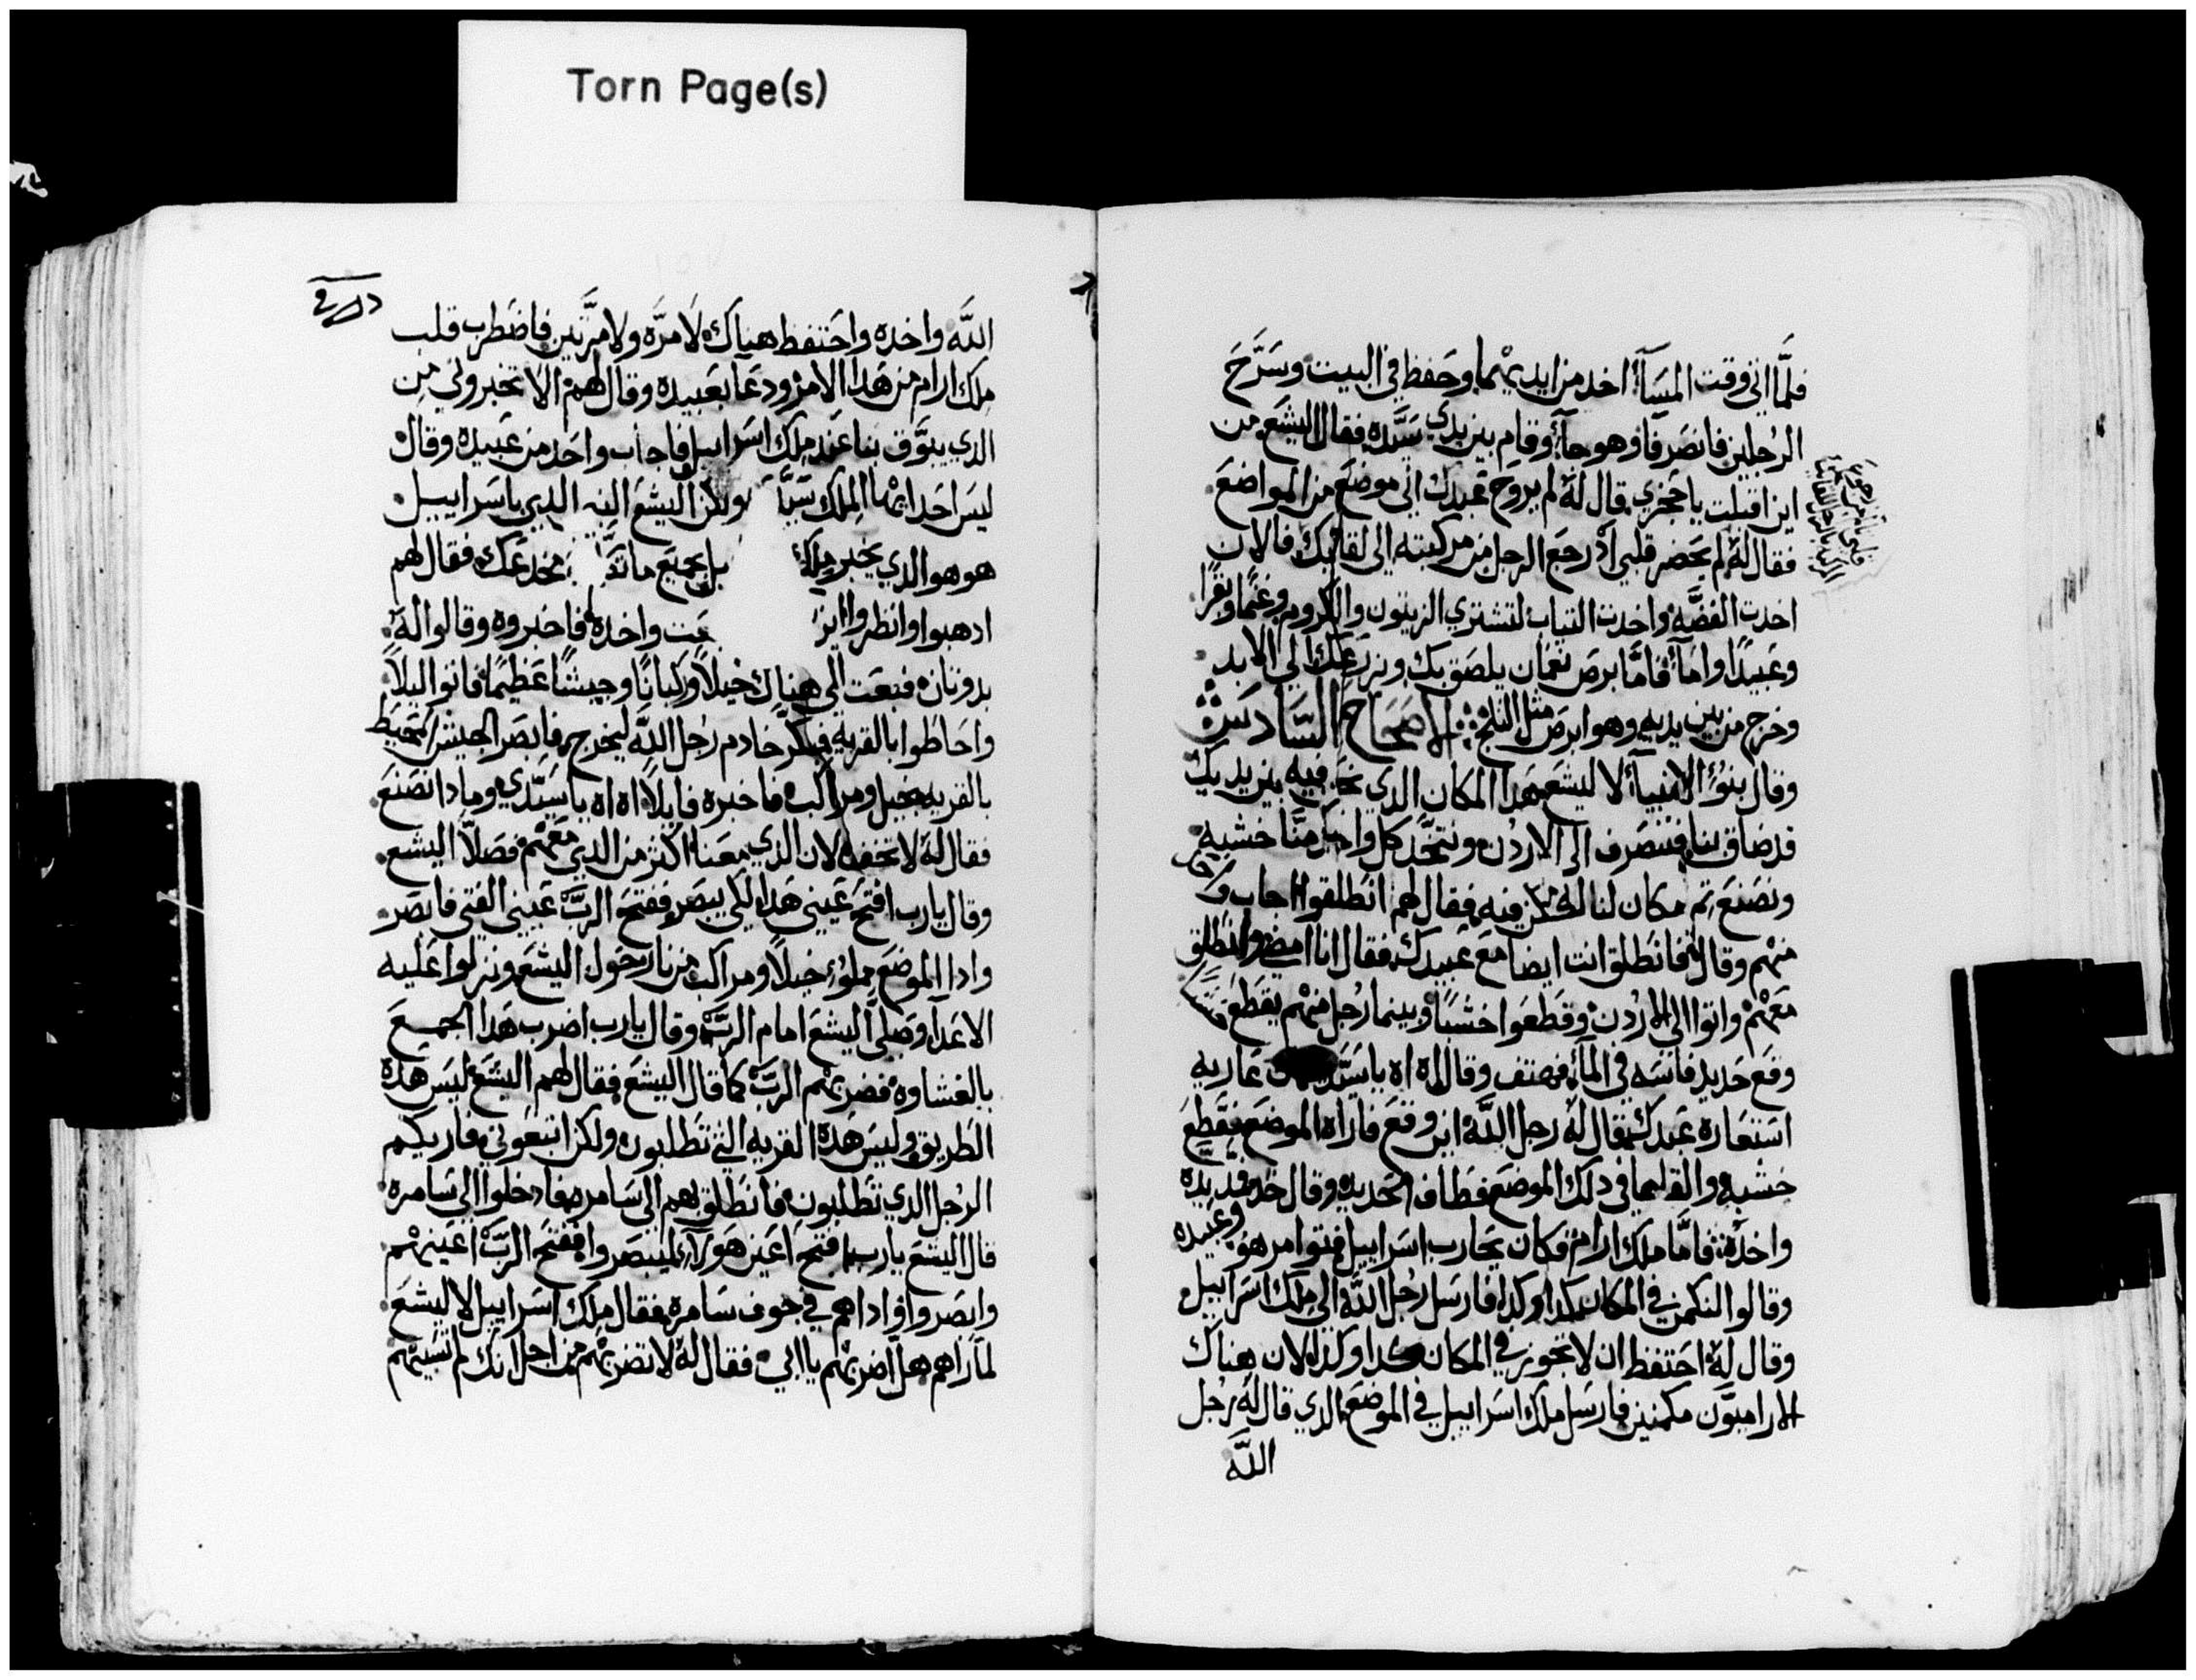 Torn Page(s)
فلمَّا اتي وقت المسآء اخد من ايديهما وحفظ في البيت وسَرَّحَ
الرجلين فانصرفا وهو جآء وقام بين يدي سيَّده فقال اليشع من
اين اقبلت يا جحزي قال له لم يروح عبدك الي موضع من المواضع
فقال له لم يحضر قلبي اذ رجع الرجل من مركبته الي لقائك فالان
اخدت الفضَّه واخدت التياب لتشتري الزيتون والكروم وغنمًا وبقرًا
وعبيدًا وامآء فامَّا برص نعمان يلصق بك وبزرعك الي الابد
وخرج من بين يديه وهو ابرص مثل التلج الاصحاح السَّادس
وقال بنوُ الانبيآء لاليشع هدا المكان الدي نحن فيه بين يديك
قد ضاق بنا فننصرف الي الاردن ونتخد كل واحد منَّا خشبه
ونصنع تم مكان لنا لنسكن فيه فقال لهم انطلقوا اجاب واحد
منهم وقال له فانطلق انت ايضا مع عبيدك فقال انا امضي وانطلق
معهم واتوا الي الاردن وقطعوا خشبًا وبينما رجل منهم يقطع خشبه
وقع حديد فاسه في المآء فهتف وقال اه اه يا سيَّدي عاريه
استعاره عبدك فقال له رجل الله اين وقع فاراه الموضع فقطع
خشبه والقاها في دلك الموضع فطاف الحديد وقال خد فمد يده
واخده فامَّا ملك ارام فكان يحارب اسراييل فتوامر هو وعبيده
وقالوا لنكمن في المكان كدا وكدا فارسل رجل الله الي ملك اسراييل
وقال له احتفظ ان لا تجوز في المكان كدا وكدا لان هناك
الاراميوَّن مكمنين فارسل ملك اسراييل في الموضع الدي قال له رجل
الله
الله واخده واحتفظ هناك لا مرَّه ولا مرَّتين فاضطرب قلب
ملك ارام من هدا الامر ودعا بعبيده وقال لهم الا تخبروني من
الدي يبوَّق بنا عند ملك اسراييل فاجاب واحد من عبيده وقال
ليس احد ايها الملك سيَّدي ولكن اليشع النبي الدي باسراييل
هو هو الدي يخبر ملك بجميع ما مخدعك فقال لهم
ادهبوا وانظروا اين واخده فاخبروه وقالوا له
بدوتان فبعت الي هناك خيلًا وركبانًا وجيشًا عظيمًا فاتوا ليلًا
واحاطوا بالقريه فبكَّر خادم رجل الله ليخرج فابصر الجيش محيط
بالقريه بخيل ومراكب فاخبره قايلًا اه اه يا سيَّدي ومادا نصنع
فقال له لا تخف لان الدي معنا اكثر من الدي معهم فصلَّا اليشع
وقال يا رب افتح عيني هدا لكي يبصر ففتح الربَّ عيني الفتي فابصر
وادا الموضع مملوء خيلًا ومراكب من نار حول اليشع ونزلوا عليه
الاعدآء وصلي اليشع امام الربَّ وقال يا رب اضرب هدا الجمع
بالغشاوه فضربهم الربَّ كما قال اليشع فقال لهم اليشع ليس هده
الطريق وليس هده القريه التي تطلبون ولكن اتبعوني فاريكم
الرجل الدي تطلبون فانطلق بهم الي سامره فادخلوا الي سامره
قال اليشع يا رب افتح اعين هولآء ليبصروا ففتح الربَّ اعينهم
وابصروا وادا هم في جوف سامره فقال ملك اسراييل لاليشع
لما راهم هل اضربهم يا ابي فقال له لا تضربهم من اجل انك لم تسبيهم